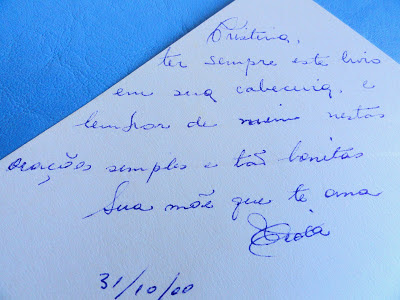 Cristina,
ter sempre este livro
em sua cabeceira, e
lembrar de mim nestas
orações simples e tão bonitas
Sua mãe que te ama
31/10/00